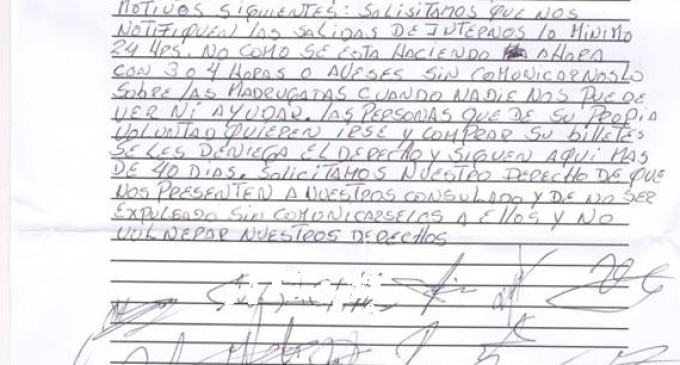 MOTIVOS SIGUIENTES: SOLISITAMOS QUE NOS
NOTIFIQUEN LAS SALIDAS DE INTERNOS LO MINIMO
24 HRS. NO COMO SE ESTA HACIENDO AHORA
CON 3 O 4 HORAS O AVESES SIN COMUNICARNOSLO
SOBRE LAS MADRUGATAS CUANDO NADIE NOS PUEDE
VER NI AYUDAR. LAS PERSONAS QUE DE SU PROPIA
VOLUNTAD QUIEREN IRSE Y COMPRAR SU BILLETES
SE LES DENIEGA EL DERECHO Y SIGUEN AQUI MAS
DE 40 DIAS. SOLICITAMOS NUESTRO DERECHO DE QUE
NOS PRESENTEN A NUESTROS CONSULADO Y DE NO SER
EXPULSADO SIN COMUNICARSELOS A ELLOS Y NO
VULNERAR NUESTROS DERECHOS